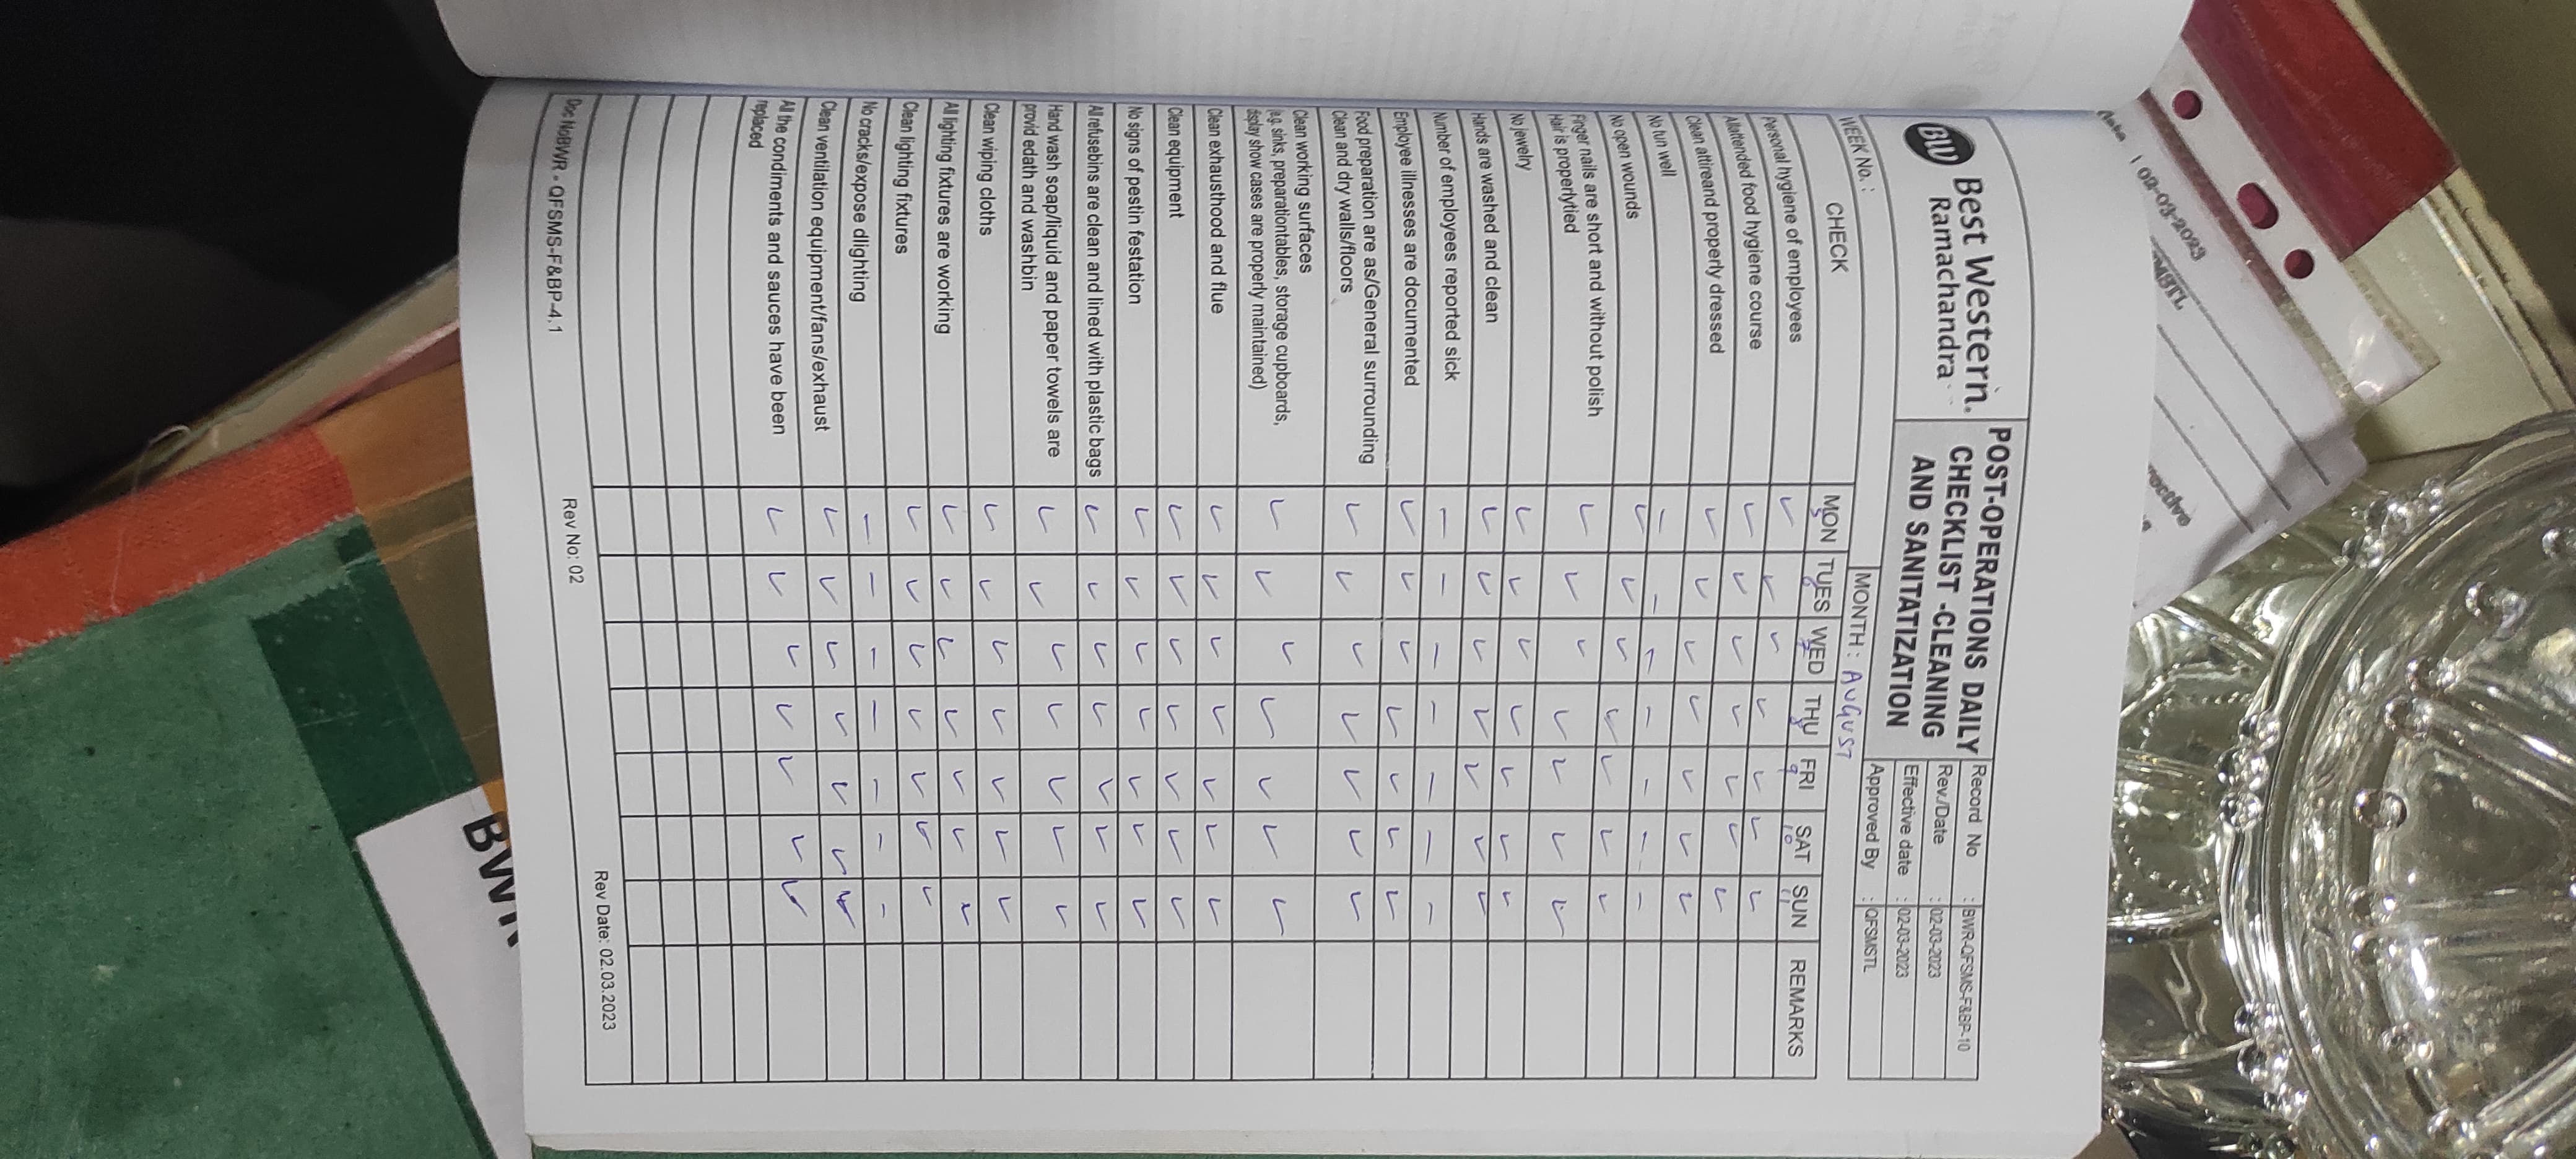 BW Best Western.
Ramachandra
POST-OPERATIONS DAILY
CHECKLIST -CLEANING
AND SANITATIZATION
Record No : BWR-QFSMS-F&BP-10
Rev./Date : 02-03-2023
Effective date : 02-03-2023
Approved By : QFSMSTL
WEEK No. :
MONTH : AUGUST
CHECK MON TUES WED THU FRI SAT SUN REMARKS
5 6 7 8 9 10 11
Personal hygiene of employees ✓ ✓ ✓ ✓ ✓ ✓ ✓
Allattended food hygiene course ✓ ✓ ✓ ✓ ✓ ✓ ✓
Clean attireand properly dressed ✓ ✓ ✓ ✓ ✓ ✓ ✓
No tun well – – – – – – –
No open wounds ✓ ✓ ✓ ✓ ✓ ✓ ✓
Finger nails are short and without polish
Hair is properlytied ✓ ✓ ✓ ✓ ✓ ✓ ✓
No jewelry ✓ ✓ ✓ ✓ ✓ ✓ ✓
Hands are washed and clean ✓ ✓ ✓ ✓ ✓ ✓ ✓
Number of employees reported sick – – – – – – –
Employee illnesses are documented ✓ ✓ ✓ ✓ ✓ ✓ ✓
Food preparation are as/General surrounding
Clean and dry walls/floors ✓ ✓ ✓ ✓ ✓ ✓ ✓
Clean working surfaces
(e.g. sinks, preparationtables, storage cupboards,
display show cases are properly maintained) ✓ ✓ ✓ ✓ ✓ ✓ ✓
Clean exhausthood and flue ✓ ✓ ✓ ✓ ✓ ✓ ✓
Clean equipment ✓ ✓ ✓ ✓ ✓ ✓ ✓
No signs of pestin festation ✓ ✓ ✓ ✓ ✓ ✓ ✓
All refusebins are clean and lined with plastic bags ✓ ✓ ✓ ✓ ✓ ✓ ✓
Hand wash soap/liquid and paper towels are
provid edath and washbin ✓ ✓ ✓ ✓ ✓ ✓ ✓
Clean wiping cloths ✓ ✓ ✓ ✓ ✓ ✓ ✓
All lighting fixtures are working ✓ ✓ ✓ ✓ ✓ ✓ ✓
Clean lighting fixtures ✓ ✓ ✓ ✓ ✓ ✓ ✓
No cracks/expose dlighting – – – – – – –
Clean ventilation equipment/fans/exhaust ✓ ✓ ✓ ✓ ✓ ✓ ✓
All the condiments and sauces have been
replaced ✓ ✓ ✓ ✓ ✓ ✓ ✓
Doc NoBWR - QFSMS-F&BP-4.1 Rev No: 02 Rev Date: 02.03.2023
02-03-2023
BWR